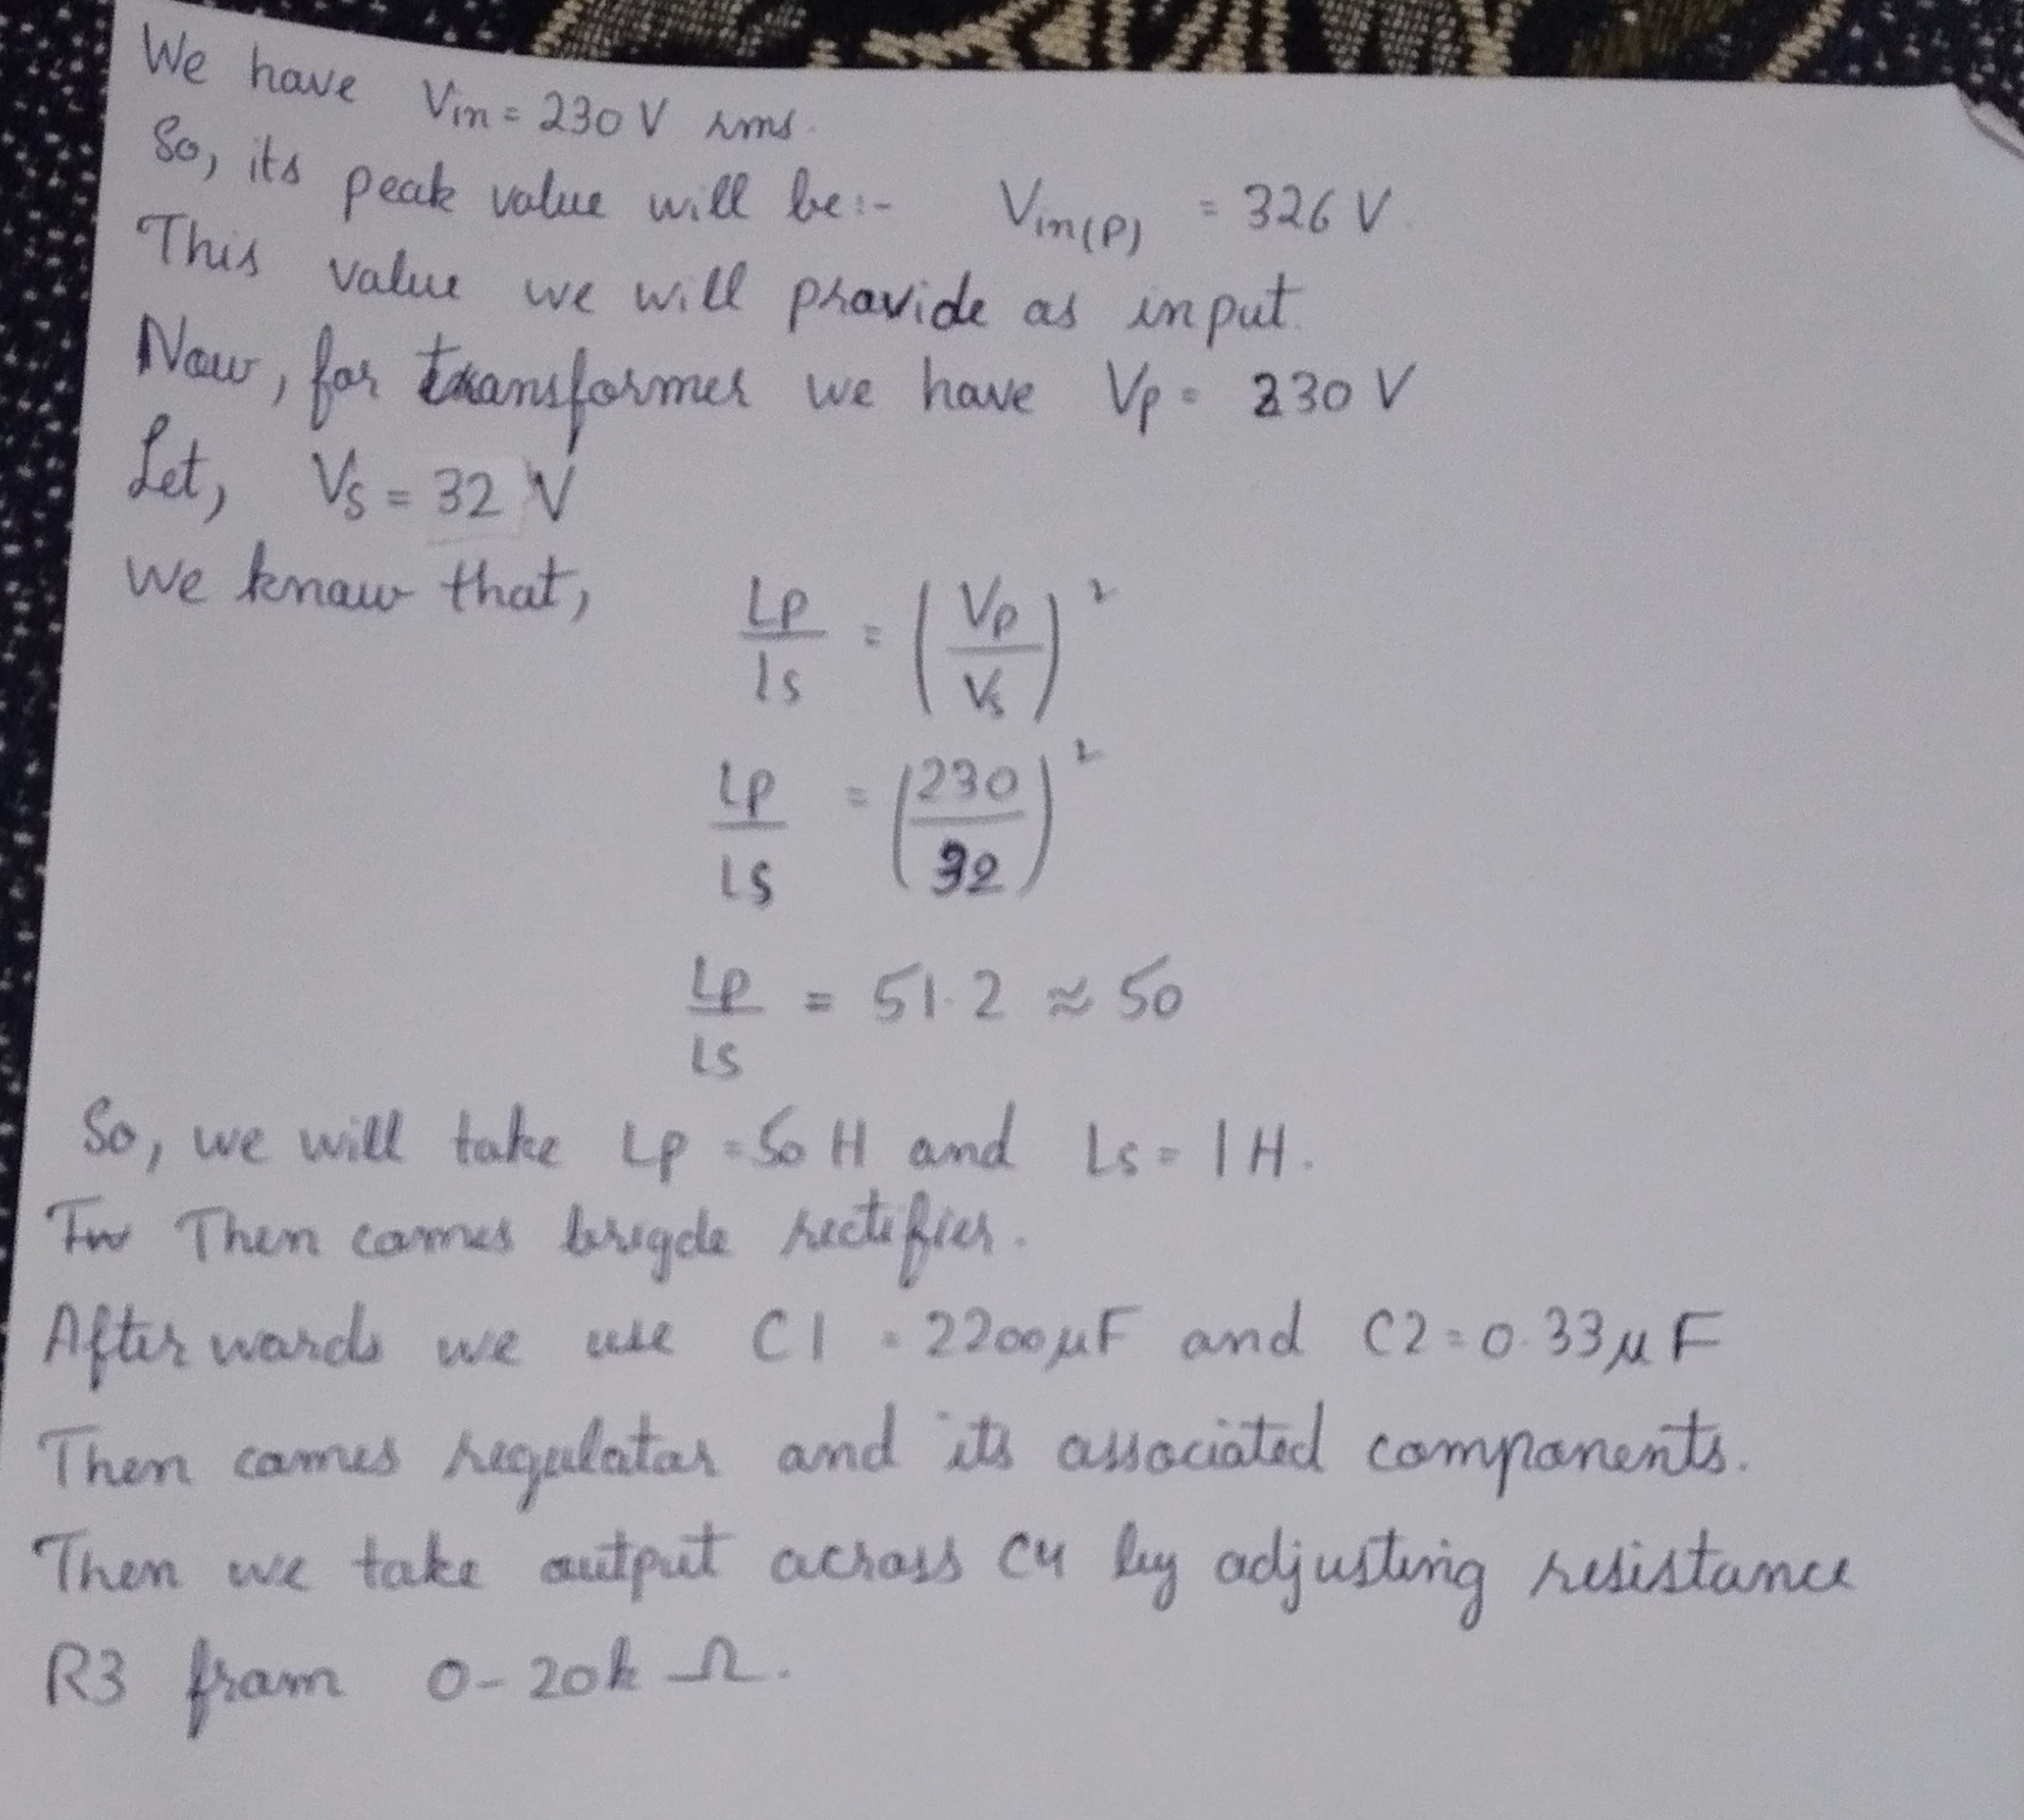 We have Vin = 230 V rms.
So, its peak value will be:- Vin(P) = 326 V.
This value we will provide as input.
Now, for transformer we have Vp = 230 V
Let, Vs = 32 V
We know that, Lp/Ls = (Vp/Vs)²
Lp/Ls = (230/32)²
Lp/Ls = 51.2 ≈ 50
So, we will take Lp = 50 H and Ls = 1 H.
Then comes brigde rectifier.
Afterwards we use C1 = 2200μF and C2 = 0.33μF
Then comes regulator and its associated components.
Then we take output across C4 by adjusting resistance
R3 from 0-20k Ω.